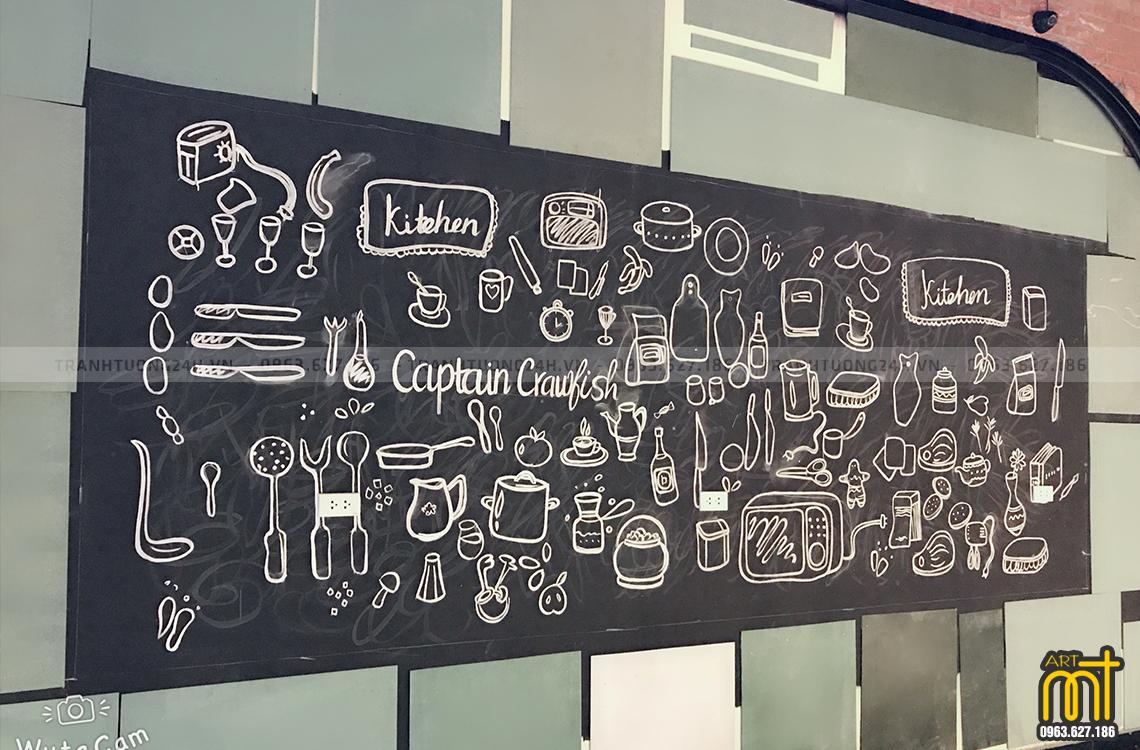 Kitchen
Kitchen
TRANHTUONG24H.VN - 0963.627.186 TRANHTUONG24H.VN - 0963.627.186 TRANHTUONG24H.VN - 0963.627.186
Captain Crawfish
WutaCam
ART
mt
0963.627.186